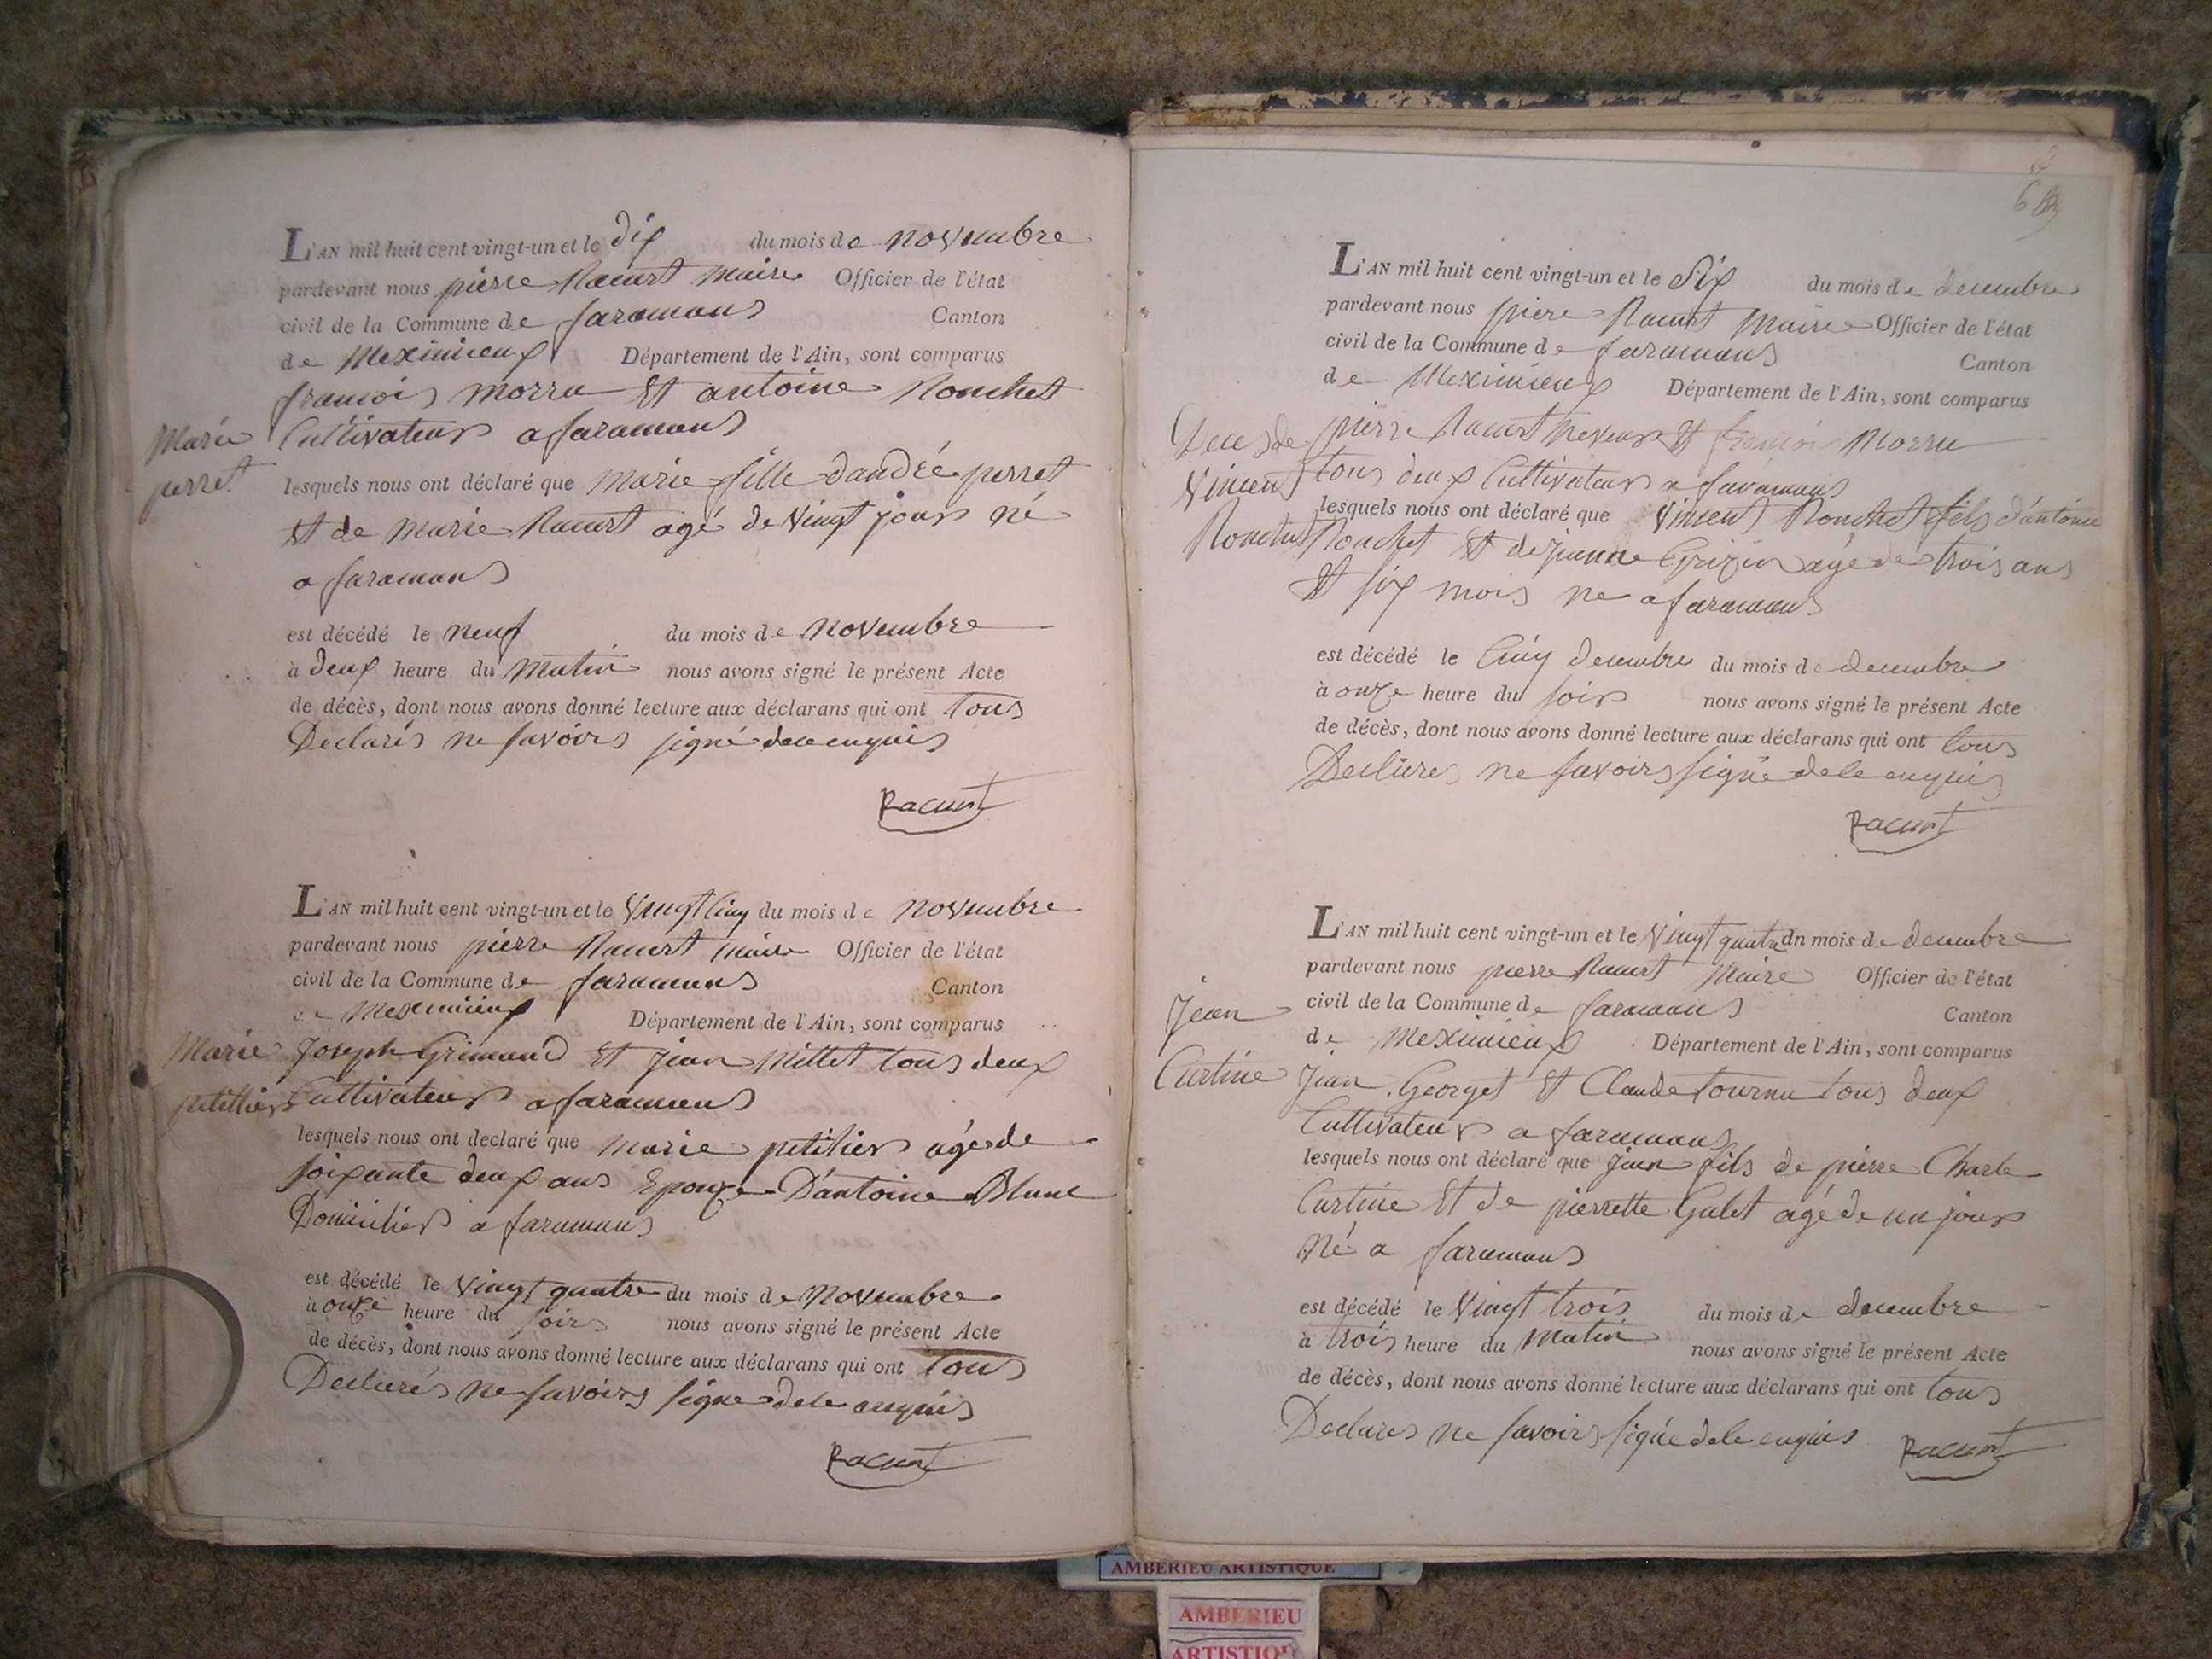 L'AN mil huit cent vingt-un et le dix du mois de novembre
pardevant nous pierre Racurt maire Officier de l'état
civil de la Commune de faramans Canton
de Meximieux Département de l'Ain, sont comparus
francois morru et antoine Ronchet
Marie Cultivateurs a faramans
perret lesquels nous ont déclaré que marie fille dandré perret
et de marie Racurt agé de vingt jour né
a faramans
est décédé le neuf du mois de novembre
à deux heure du matin nous avons signé le présent Acte
de décès, dont nous avons donné lecture aux déclarans qui ont tous
Declarés ne savoirs signé dele enquis
Racurt
L'AN mil huit cent vingt-un et le vingt cinq du mois de novembre
pardevant nous pierre Racurt maire Officier de l'état
civil de la Commune de faramans Canton
de Meximieux Département de l'Ain, sont comparus
Marie Joseph Grimaud et jean Millet tous deux
petitier Cultivateurs a faramans
lesquels nous ont declaré que marie petitier agé de
soixante deux ans Epouze D'antoine Blanc
Domicilier a faramans
est décédé le vingt quatre du mois de novembre
à onze heure du soir nous avons signé le présent Acte
de décès, dont nous avons donné lecture aux déclarans qui ont tous
Declarés ne savoirs signe dele enquis
Racurt
6
L'AN mil huit cent vingt-un et le Six du mois de decembre
pardevant nous piere Racurt Maire Officier de l'état
civil de la Commune de faramans Canton
de Meximieux Département de l'Ain, sont comparus
Deces de pierre Racurt neveux et francois Morru
Vincent tous deux Cultivateurs a faramans
lesquels nous ont déclaré que Vincent Ronchet fils d'antoine
Ronchet Ronchet et de jeanne Grizin agé de trois ans
et six mois né a faramans
est décédé le Cinq decembre du mois de decembre
à onze heure du soir nous avons signé le présent Acte
de décès, dont nous avons donné lecture aux déclarans qui ont tous
Declares ne savoirs signé dele enquis
Racurt
L'AN mil huit cent vingt-un et le Vingt quatre dn mois de decembre
pardevant nous pierre Racurt Maire Officier de l'état
Jean civil de la Commune de faramans Canton
de Meximieux Département de l'Ain, sont comparus
Curtine Jean Georget et Claude tournu tous deux
Cultivateurs a faramans
lesquels nous ont déclaré que jean fils de pierre Charle
Curtine et de pierrette Galet agé de un jour
né a faramans
est décédé le Vingt trois du mois de decembre
à trois heure du matin nous avons signé le présent Acte
de décès, dont nous avons donné lecture aux déclarans qui ont tous
Declares ne savoirs signé dele enquis Racurt
AMBERIEU ARTISTIQUE
AMBERIEU
ARTISTIQUE